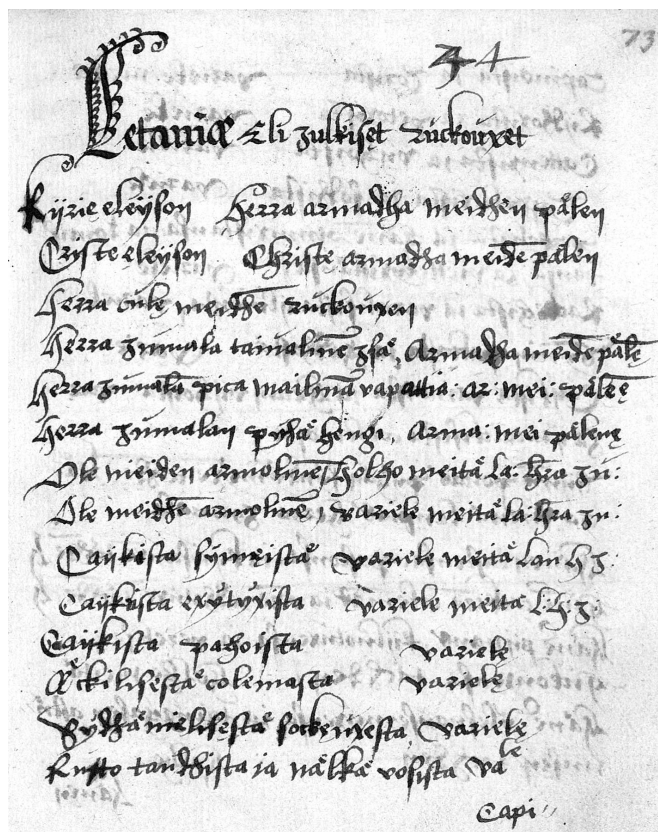 73
44
Letaniæ Eli Julkiset Ruckouxet
Kyrie eleyson Herra armadha meidhen pälen
Criste eleyson Christe armadha meidē pälen
Herra cule meidhē Ruckouxen
Herra Jumala taiualinē Jsä, Armadha meidē pälē
Herra Jumalā pica mailmā vapattia: ar: mei: pälē
Herra Jumalan pyhä hengi, arma: mei päle
Ole meiden armolinē holho meitä la: hra Ju:
Ole meidhē armolinē, variele meitä la: hra Ju:
Caijkista synneistä variele meitä lau h J:
Caijkista exytyxista variele meitä l: h: J:
Caijkista pahoista variele
Äckilisestä colemasta variele
Sydhämelisestä sockeuxesta variele
Rutto taudhista ia nälkä vosista va le
Capi